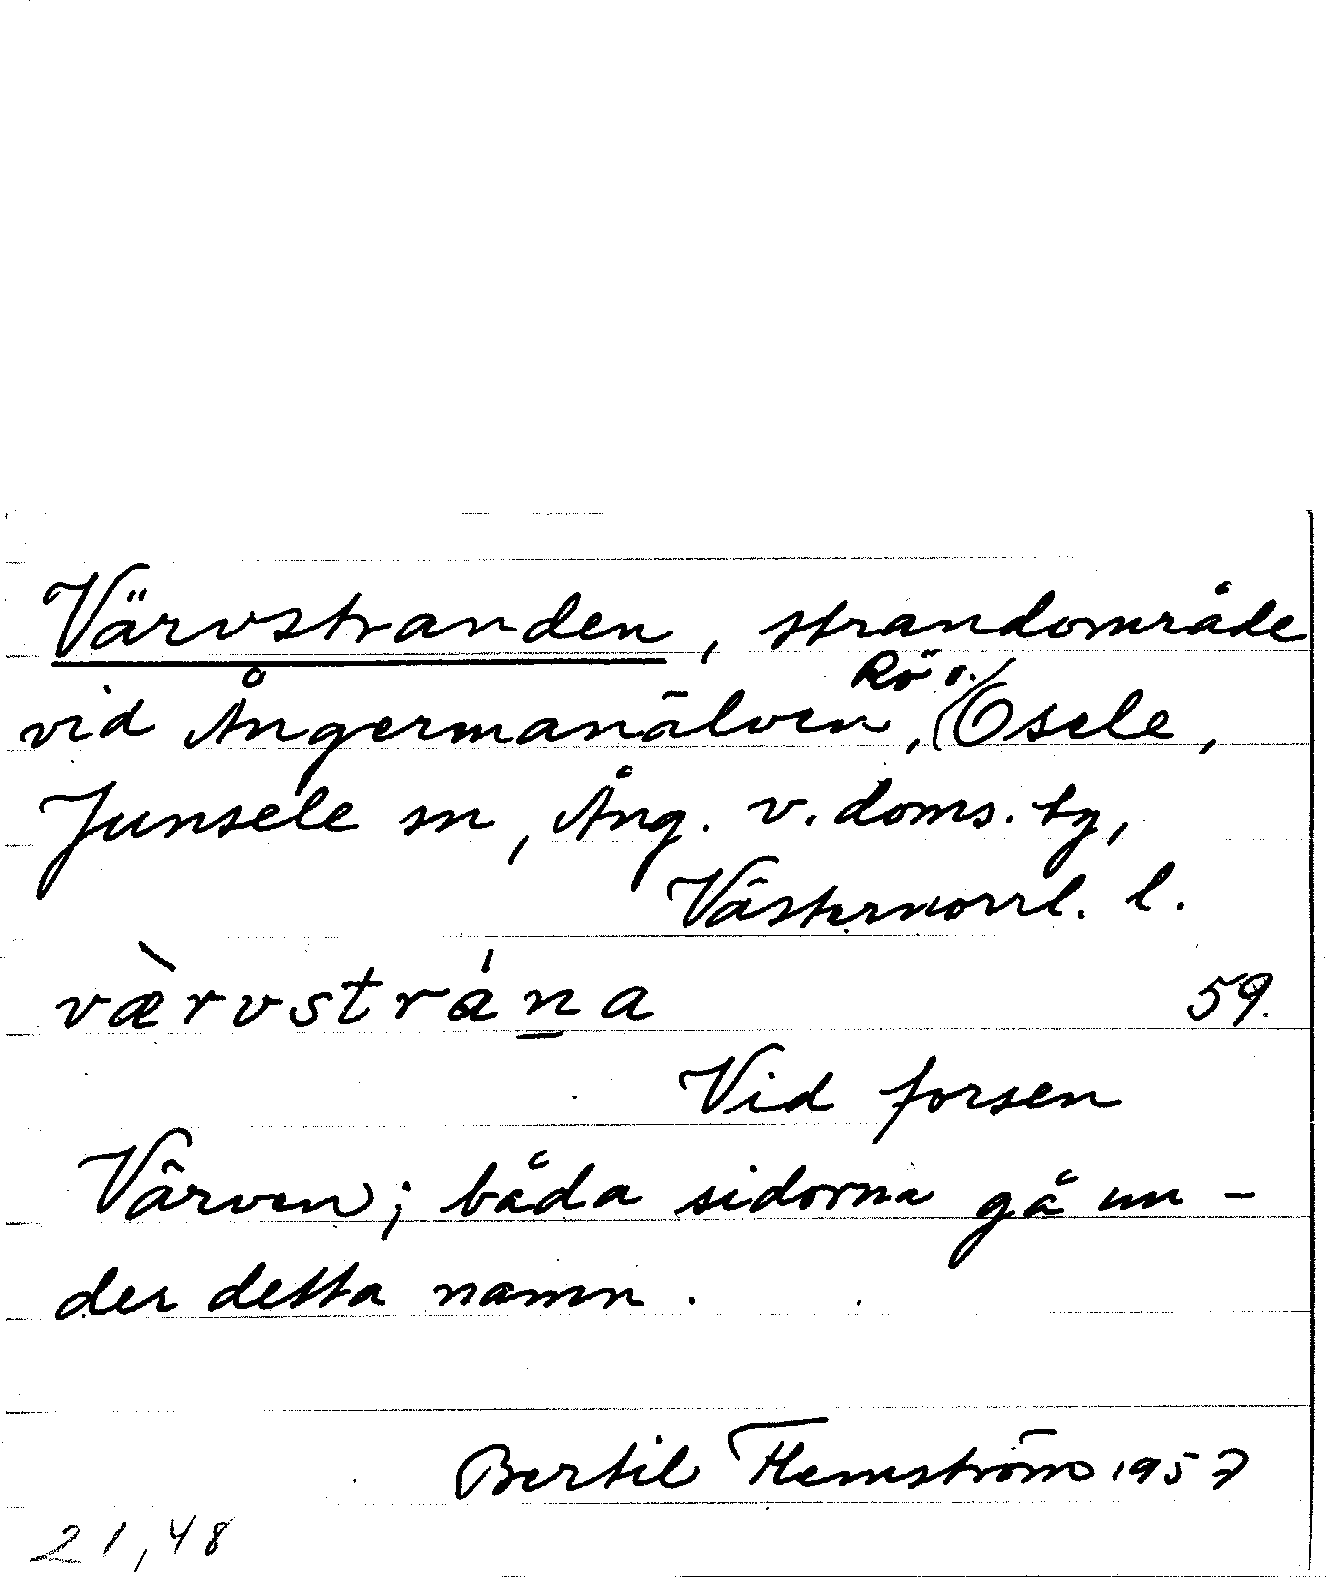 Värvstranden, strandområde
vid Ångermanälven, (Rö o./Osele,
Junsele sn, Ång. v. doms. tg,
Västernorrl. l.
værvstrána 59.
Vid forsen
Värven; båda sidorna gå un-
der detta namn.
Bertil Flemström 1957
21,48